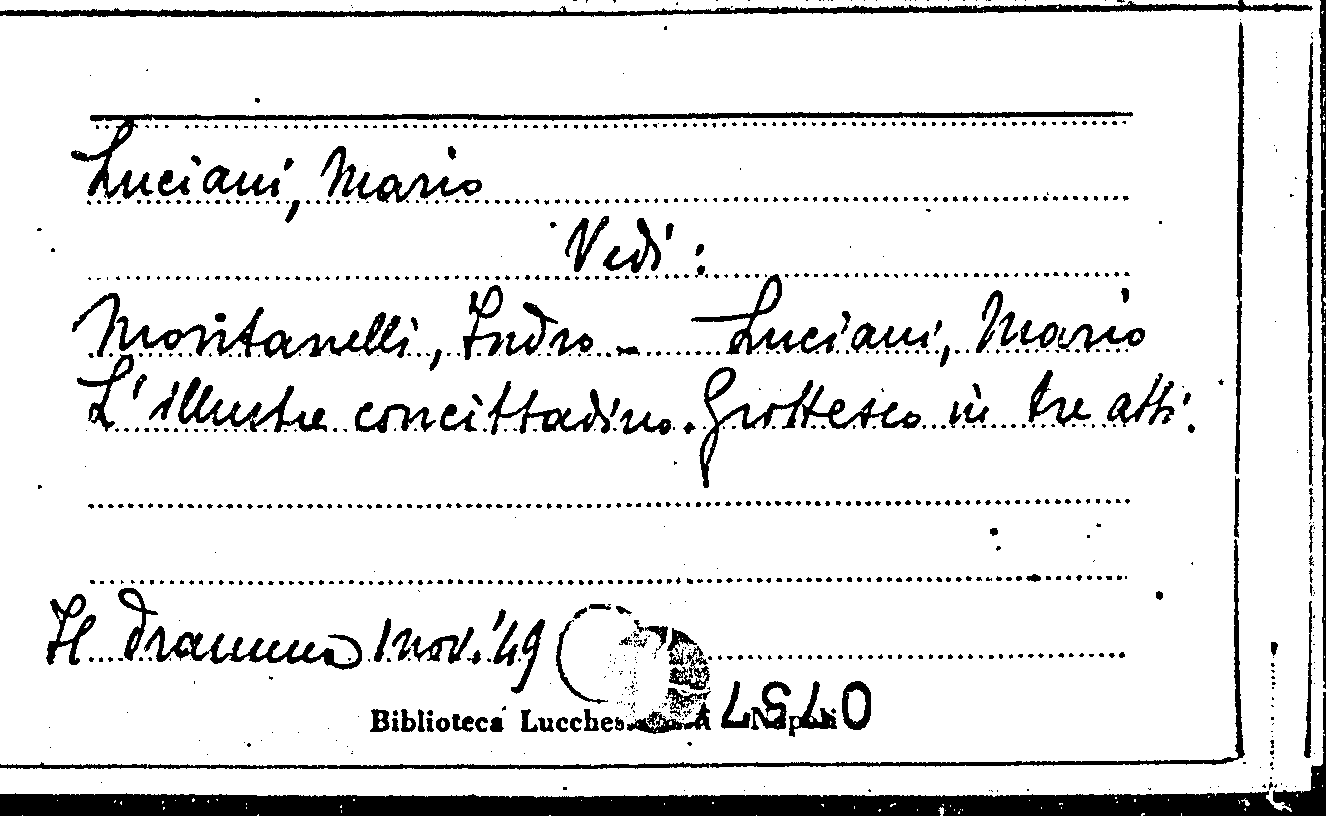 Luciani, Mario
Vedi:
Montanelli, Indro - Luciani, Mario
L'illustre concittadino. Grottesco in tre atti.
Il dramma 1 nov. '49
Biblioteca Napoli